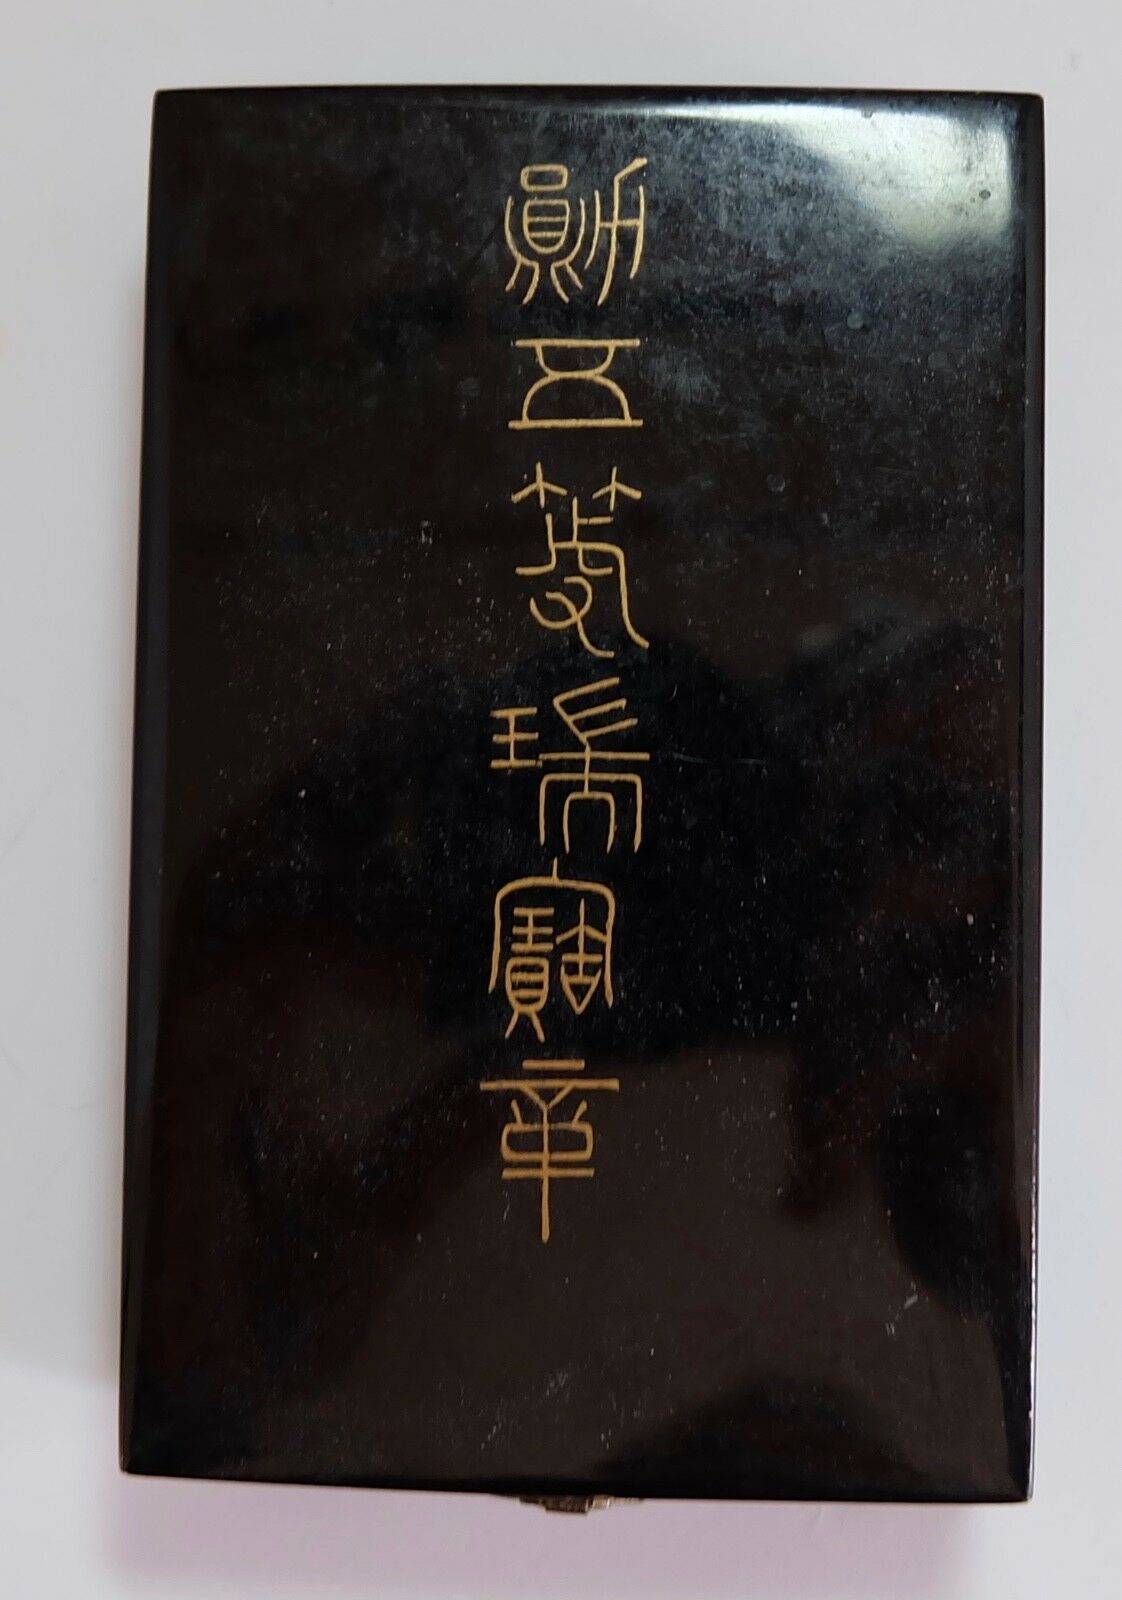 勲五等瑞寶章